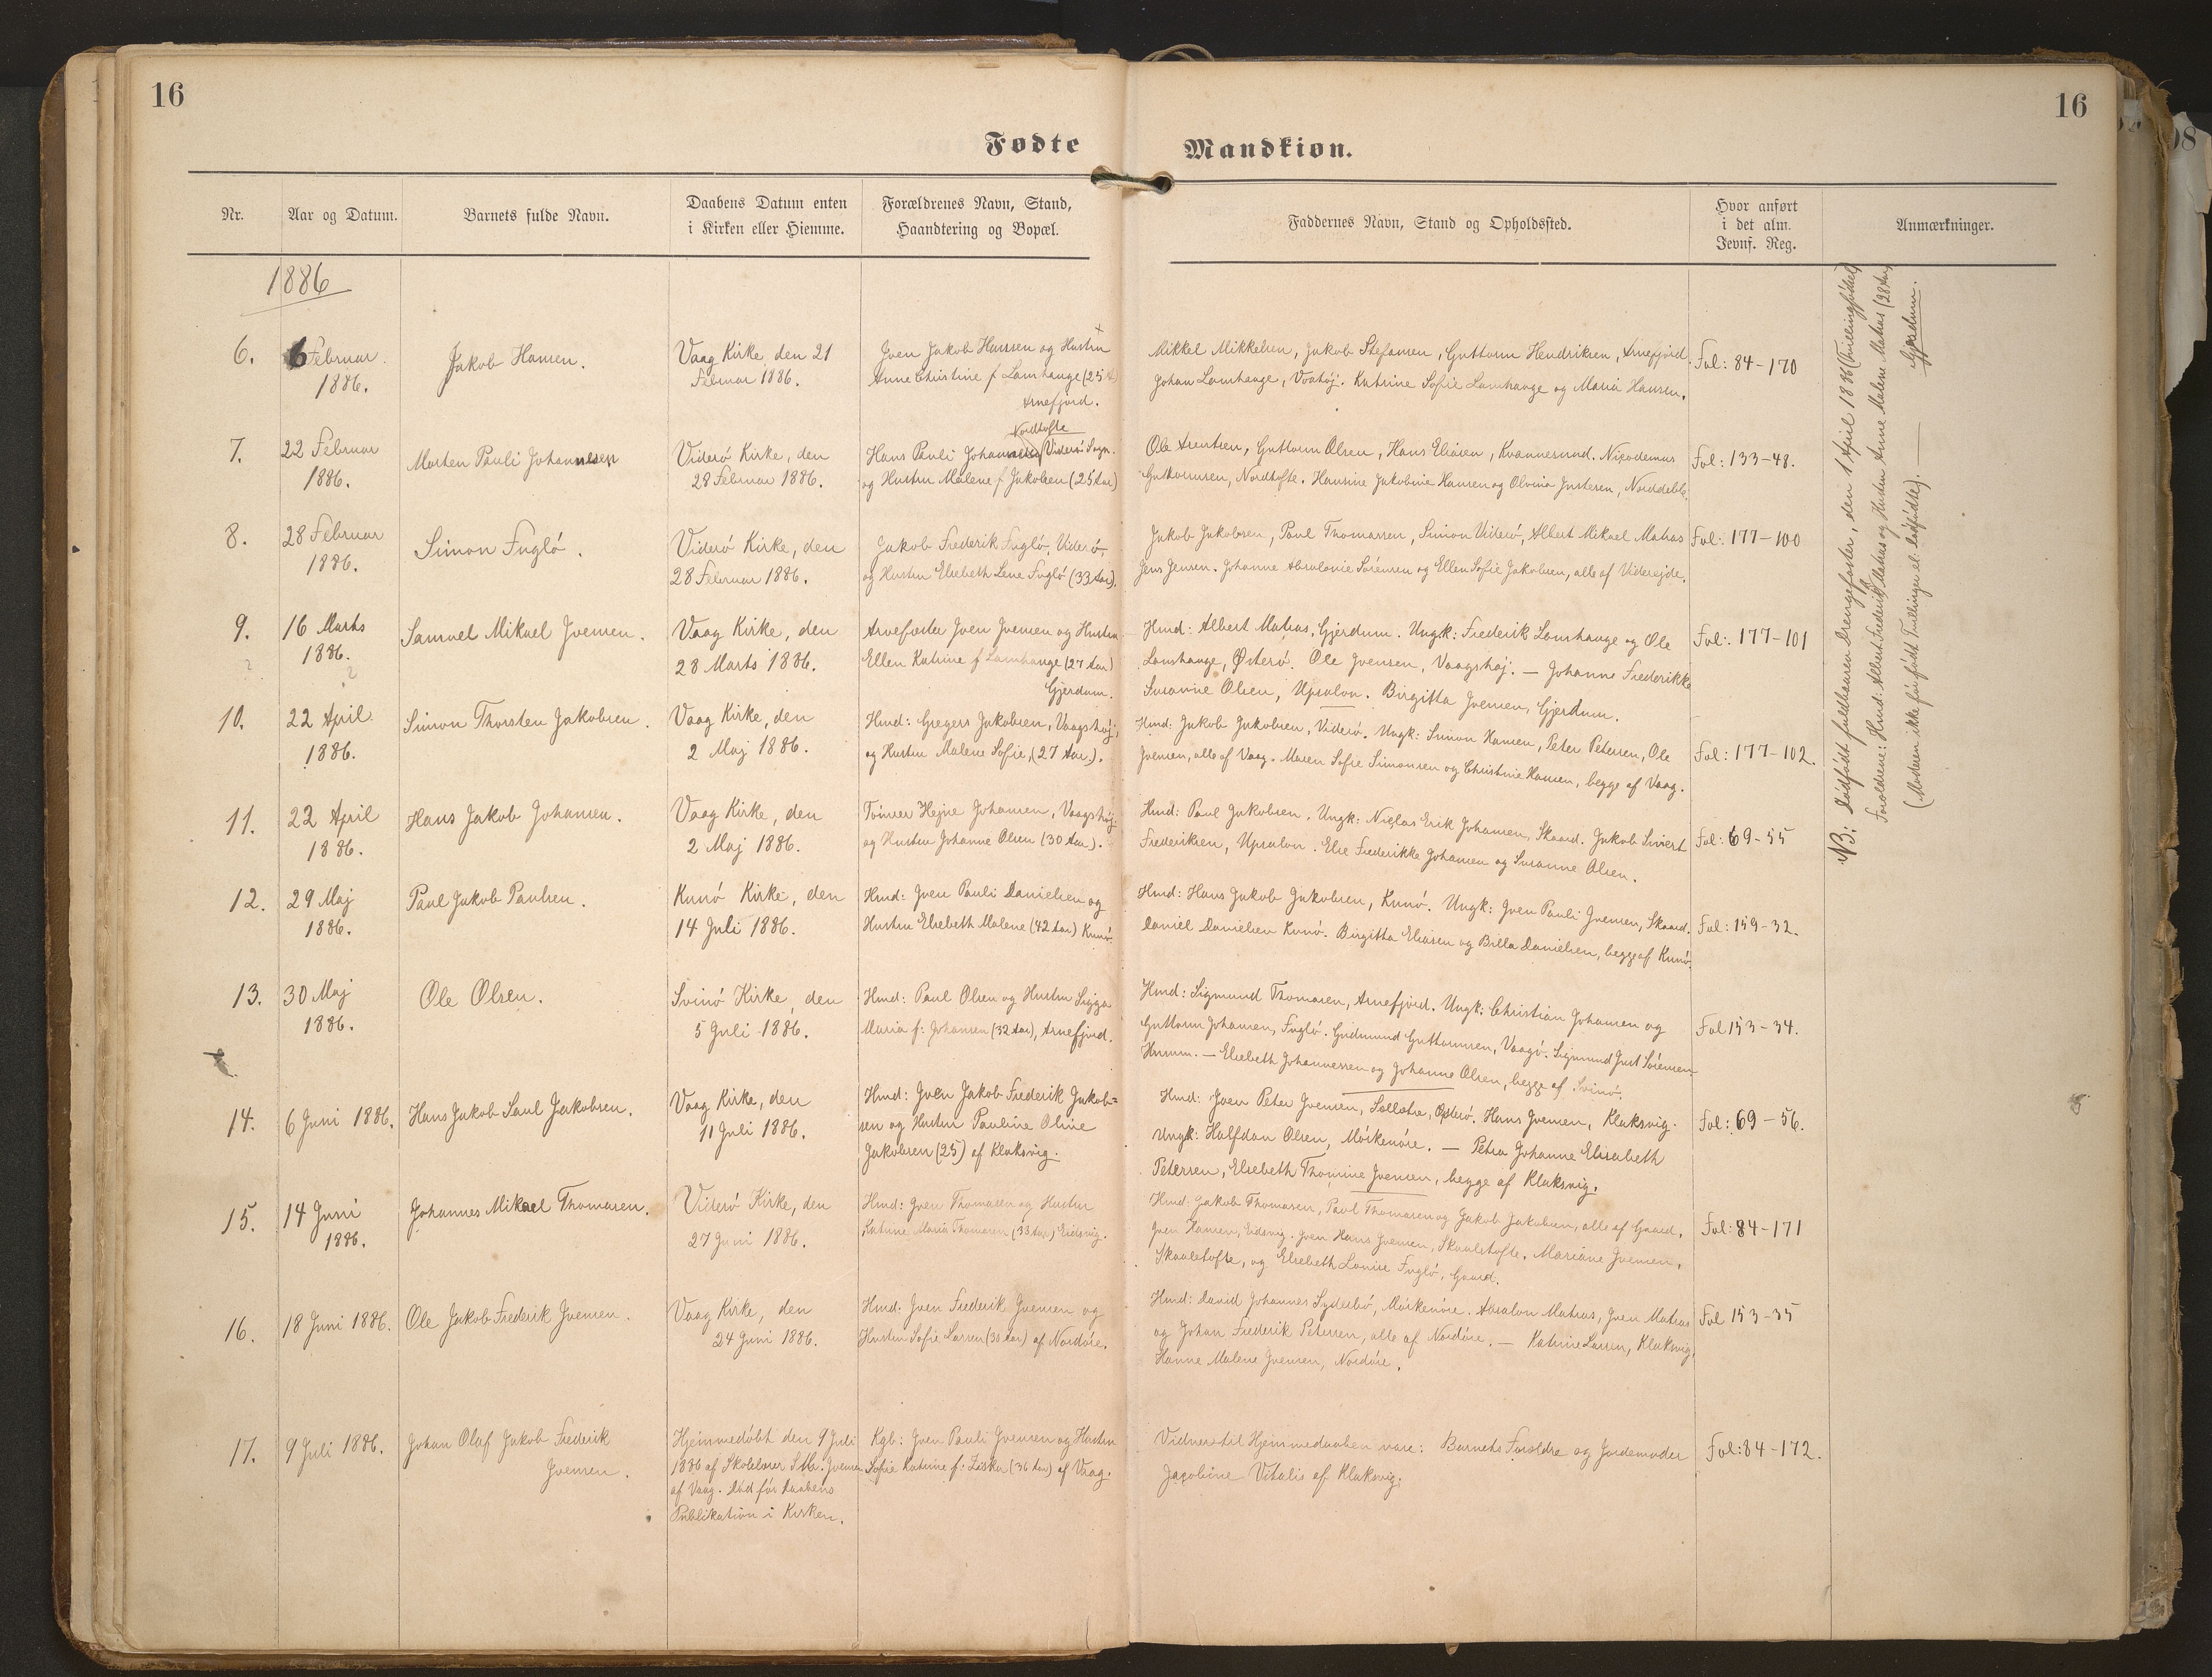 16
16
Fødte
Mandkiøn.
Nr.
Aar og Datum.
Barnets fulde Navn.
Daabens Datum enten
i Kirken eller Hiemme.
Forældrenes Navn, Stand,
Haandtering og Bopæl.
Faddernes Navn, Stand og Opholdssted.
Hvor anført
i det alm.
Jevnf. Reg.
Anmærkninger.
1886
6.
6 Februar
1886.
Jakob Hansen.
Vaag Kirke, den 21
Februar 1886.
Joen Jakob Hanssen og Hustru
Anne Christine f Lamhauge (25
Arnefjord.
Mikkel Mikkelsen, Jakob Stefansen, Guttorm Hendriksen, Arnefjord.
Johan Lamhauge, Vaahøj. Katrine Sofie Lamhauge og Maria Hansen.
Fol: 84-170
7.
22 Februar
1886.
Morten Pauli Johannesen
Viderø Kirke, den
28 Februar 1886.
Nordtofte
Hans Pauli Johannesen Viderø Sogn.
og Hustru Malene f Jakobsen (25 Aar)
Ole Arentsen, Guttorm Olsen, Hans Eliasen, Kvannesund. Nicodemus
Guttormsen, Nordtofte. Hansine Jakobine Hansen og Olvina Justesen, Norddeble.
Fol: 133-48.
8.
28 Februar
1886.
Simon Fuglø.
Viderø Kirke, den
28 Februar 1886.
Jakob Frederik Fuglø, Viderø,
og Hustru Elsebeth Lene Fuglø (33 Aar).
Jakob Jakobsen, Paul Thomassen, Simon Viderø, Albert Mikael Matras
Jens Jensen. Johanne Absalonie Sørensen og Ellen Sofie Jakobsen, alle af Viderejde.
Fol: 177-100
9.
16 Marts
1886.
Samuel Mikael Joensen.
Vaag Kirke, den
28 Marts 1886.
Arvefæster Joen Joensen og Hustru
Ellen Katrine f Lamhauge (27 Aar)
Gjerdum.
Hmd: Albert Matras, Gjerdum. Ungk: Frederik Lamhauge og Ole
Lamhauge, Østerø. Ole Joensen, Vaagshøj. — Johanne Frederikke
Susanne Olsen, Upsalon. Birgitta Joensen, Gjerdum.
Fol: 177-101
10.
22 April
1886.
Simon Thorsten Jakobsen.
Vaag Kirke, den
2 Maj 1886.
Hmd: Gregers Jakobsen, Vaagshøj,
og Hustru Malene Sofie, (27 Aar.).
Hmd: Jakob Jakobsen, Viderø. Ungk: Simon Hansen, Peter Petersen, Ole
Joensen, alle af Vaag. Maren Sofie Simonsen og Christine Hansen, begge af Vaag.
Fol: 177-102.
11.
22 April
1886.
Hans Jakob Johansen.
Vaag Kirke, den
2 Maj 1886.
Tømrer Hejne Johansen, Vaagshøj
og Hustru Johanne Olsen (30 Aar).
Hmd: Paul Jakobsen. Ungk: Niclas Erik Johansen, Skaard. Jakob Sivert
Frederiksen, Upsalon. Else Frederikke Johansen og Susanne Olsen.
Fol: 69-55
12.
29 Maj
1886.
Paul Jakob Paulsen.
Kunø Kirke, den
14 Juli 1886.
Hmd: Joen Pauli Danielsen og
Hustru Elsebeth Malene (42 Aar) Kunø.
Hmd: Hans Jakob Jakobsen, Kunø. Ungk: Joen Pauli Joensen, Skaard.
Daniel Danielsen Kunø. Birgitta Eliasen og Billa Danielsen, begge af Kunø.
Fol: 159-32.
13.
30 Maj
1886.
Ole Olsen.
Svinø Kirke, den
5 Juli 1886.
Hmd: Paul Olsen og Hustru Sigga
Maria f: Johansen (32 Aar), Arnefjord.
Hmd: Sigmund Thomasen, Arnefjord. Ungk: Christian Johansen og
Guttorm Johansen, Fuglø. Gudmund Guttormsen, Vaagø. Sigmund Just Sørensen
Husum. — Elsebeth Johannessen og Johanne Olsen, begge af Svinø.
Fol 153-34.
14.
6 Juni 1886.
Hans Jakob Saul Jakobsen.
Vaag Kirke, den
11 Juli 1886.
Hmd: Joen Jakob Frederik Jakob=
sen og Hustru Pauline Oline
Jakobsen (25) af Klaksvig.
Hmd: Joen Peter Joensen, Sellatræ, Østerø. Hans Joensen, Klaksvig.
Ungk: Halfdan Olsen, Mórkenøre. — Petra Johanne Elisabeth
Petersen, Elsebeth Thomine Joensen, begge af Klaksvig.
Fol: 69-56.
15.
14 Juni
1886.
Johannes Mikael Thomasen.
Viderø Kirke, den
27 Juni 1886.
Hmd: Joen Thomasen og Hustru
Katrine Maria Thomasen (33 Aar) Eidsvig.
Hmd: Jakob Thomasen, Paul Thomasen og Jakob Jakobsen, alle af Gaard.
Joen Hansen, Eidsvig. Joen Hans Joensen, Skaaletofte. Mariane Joensen,
Skaaletofte, og Elsebeth Louise Fuglø, Gaard.
Fol: 84-171
16.
18 Juni 1886.
Ole Jakob Frederik Joensen.
Vaag Kirke, den
24 Juni 1886.
Hmd: Joen Frederik Joensen og
Hustru Sofie Larsen (30 Aar) af Nordøre.
Hmd: David Johannes Syderbø, Mørkenøre. Absalon Matras, Joen Matras
og Johan Frederik Petersen, alle af Nordøre. — Katrine Larsen, Klaksvig,
Hanne Malene Joensen, Nordøre.
Fol 153-35
17.
9 Juli 1886.
Johan Olaf Jakob Frederik
Joensen.
Hjemmedøbt den 9 Juli
1886 af Skolelærer S.M. Joensen
af Vaag. Død før Daabens
Publikation i Kirken.
Kgb: Joen Pauli Joensen og Hustru
Sofie Katrine f: Ziska (36 Aar) af Vaag.
Vidner til Hjemmedaaben vare: Barnets Forældre og Jordemoder
Jacobine Vitalis af Klaksvig.
Fol: 84-172.
NB: Dødfødt fuldbaaren Drengefoster, den 1 April 1886 (Tvillingfødsel)
Forældrene: Hmd: Albert Frederik Matras og Hustru Anne Malene Matras (28 Aar)
Gjerdum.
(Moderen ikke før født Tvillinger el. dødfødte). —